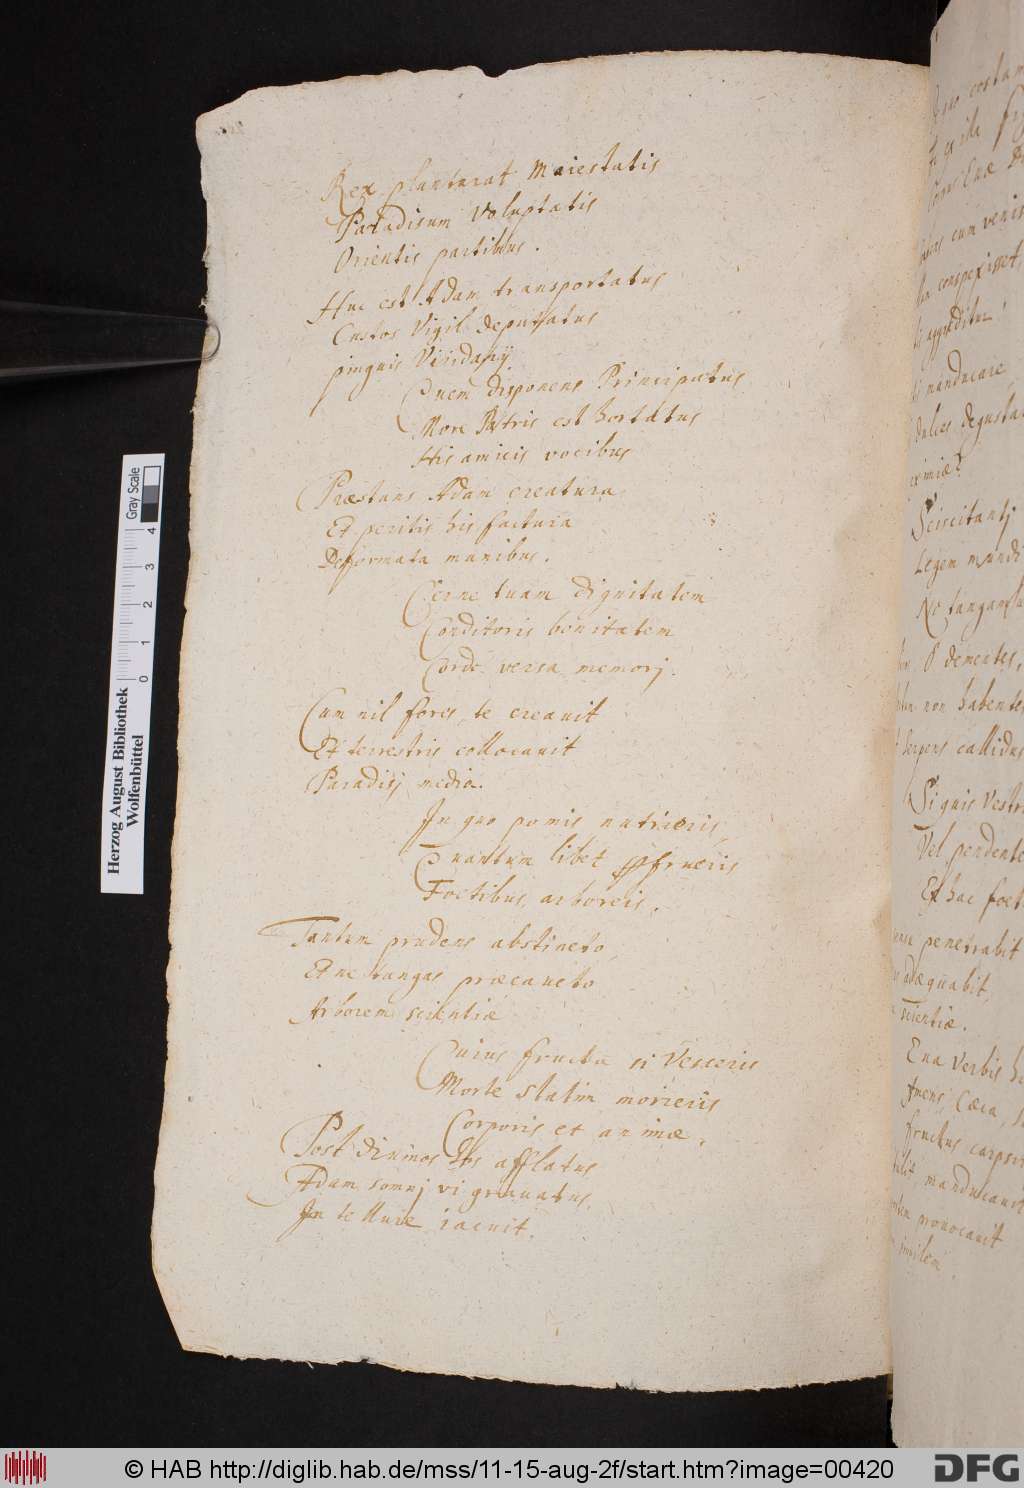 Rex plantarat Maiestatis
Paradisum Voluptatis
Orientis partibus.
Huc est Adam transportatus
Custos Vigil deputatus
pinguis Viridarij.
Quem disponens Principatus
More Patris est hortatus
His amicis vocibus
Præstans Adam creatura
Et peritis his factura
Deformata manibus.
Cerne tuam dignitatem
Conditoris bonitatem
Corde versa memorj.
Cum nil fores, te creauit
Et terrestris collocauit
Paradisj medio.
In quo pomis nutrieris,
Quantum libet perfrueris
Foetibus arboreis.
Tantum prudens abstineto,
Et ne tangas præcaueto
Arborem scientiæ
Cuius fructu si Vesceris
Morte statim morieris
Corporis et animæ.
Post diuinos hos afflatus,
Adam somnj vi grauatus,
In tellure iacuit.
quo costam
Corpus Euæ
cum venis
conspexisset,
aggreditur!
manducare
dulces degusta
eximiæ?
Sciscitantj
Legem mundi
Ne tangam
O dementes,
non habentes
Serpens callidus
Si quis Vestr
Vel pendente
Ex hac foet
penetrabit
adæquabit,
scientiæ.
Eua Verbis h
Amens, Cæca, s
fructus carpsi
manducauit
prouocauit
similem.
Herzog August Bibliothek
Wolfenbüttel
0 1 2 3 4
Gray Scale
© HAB http://diglib.hab.de/mss/11-15-aug-2f/start.htm?image=00420
DFG